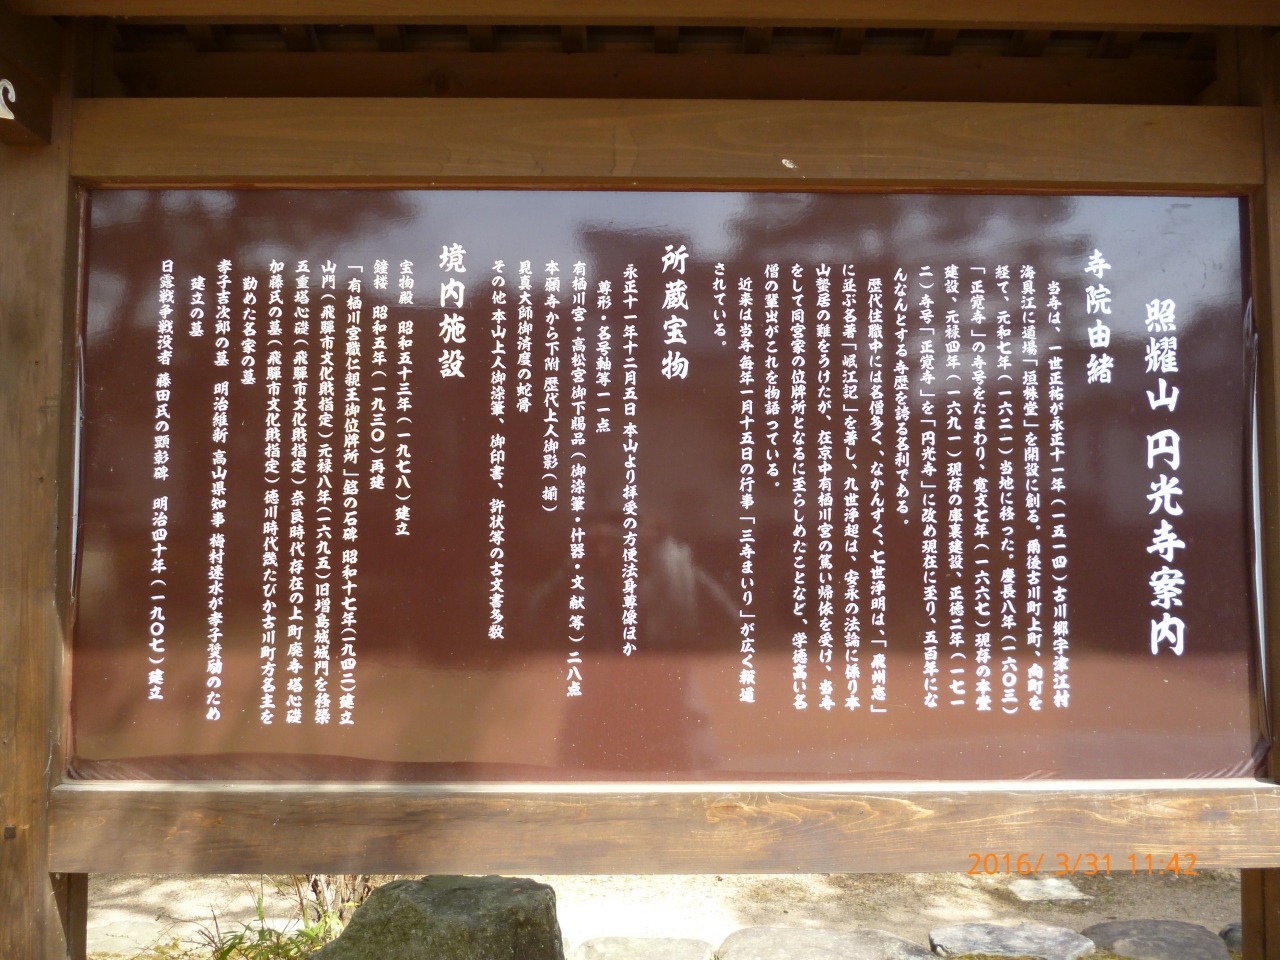 照耀山 円光寺案内
寺院由緒
当寺は、一世正祐が永正十一年（一五一四）古川郷宇津江村
海具江に道場「垣株堂」を開設に創る。爾後古川町上町、向町を
経て、元和七年（一六二一）当地に移った。慶長八年（一六〇三）
「正覚寺」の寺号をたまわり、寛文七年（一六六七）現存の本堂
建設、元禄四年（一六九一）現存の庫裏建設、正徳二年（一七一
二）寺号「正覚寺」を「円光寺」に改め現在に至り、五百年にな
んなんとする寺歴を誇る名刹である。
歴代住職中には名僧多く、なかんずく、七世浄明は、「飛州志」
に並ぶ名著「岷江記」を著し、九世浄超は、安永の法論に係り本
山蟄居の難をうけたが、在京中有栖川宮の篤い帰依を受け、当寺
をして同宮家の位牌所となるに至らしめたことなど、学徳高いる
僧の輩出がこれを物語っている。
近来は当寺毎年一月十五日の行事「三寺まいり」が広く報道
されている。
所蔵宝物
永正十一年十二月五日 本山より拝受の方便法身尊像ほか
尊形・名号軸等一一点
有栖川宮・高松宮御下賜品（御染筆・什器・文献等）二八点
本願寺から下附 歴代上人御影（揃）
見真大師御済度の蛇骨
その他 本山上人御染筆、御印書、許状等の古文書多数
境内施設
宝物殿 昭和五十三年（一九七八）建立
鐘楼 昭和五年（一九三〇）再建
「有栖川宮職仁親王御位牌所」銘の石碑 昭和十七年（一九四二）建立
山門（飛騨市文化財指定）元禄八年（一六九五）旧増島城城門を移築
五重塔心礎（飛騨市文化財指定）奈良時代存在の上町廃寺塔心礎
加藤氏の墓（飛騨市文化財指定）徳川時代幾たびか古川町方名主を
勤めた名家の墓
孝子吉次郎の墓 明治維新 高山県知事 梅村速水が孝子奨励のため
建立の墓
日露戦争戦没者 藤田氏の顕彰碑 明治四十年（一九〇七）建立
2016/ 3/31 11:42